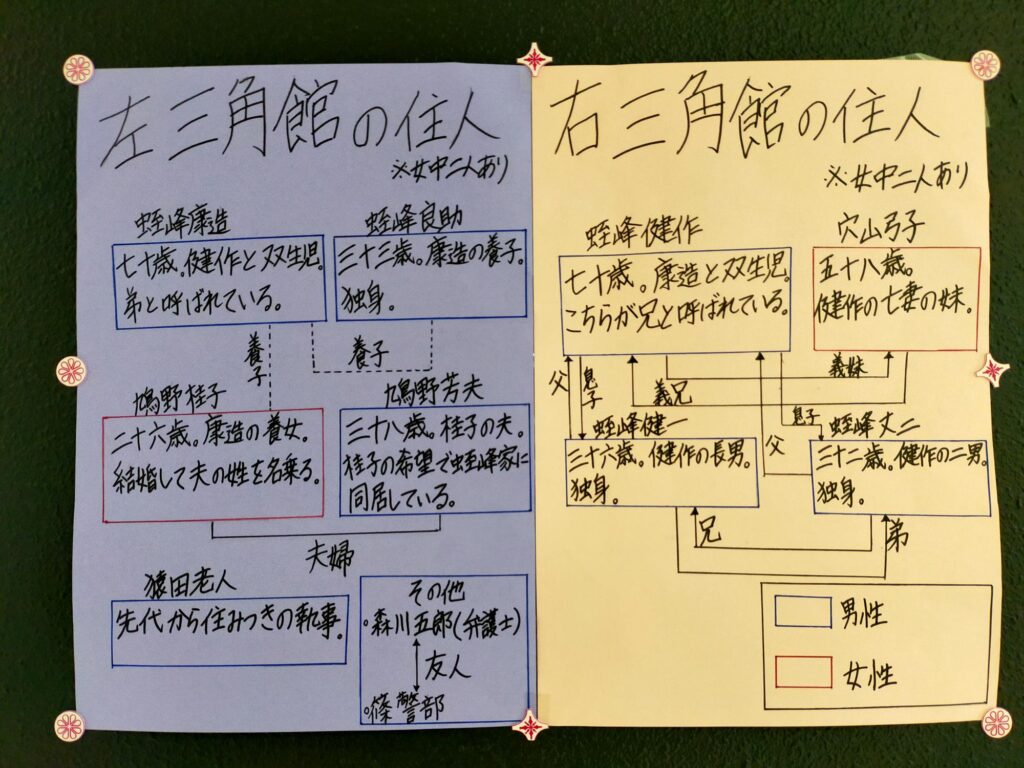 左三角館の住人
※女中二人あり
蛭峰康造
七十歳。健作と双生児。
弟と呼ばれている。
蛭峰良助
三十三歳。康造の養子。
独身。
養子
養子
鳩野桂子
二十六歳。康造の養女。
結婚して夫の姓を名乗る。
鳩野芳夫
三十八歳。桂子の夫。
桂子の希望で蛭峰家に
同居している。
夫婦
猿田老人
先代から住みつきの執事。
その他
森川五郎(弁護士)
友人
篠警部
右三角館の住人
※女中二人あり
蛭峰健作
七十歳。康造と双生児。
こちらが兄と呼ばれている。
穴山弓子
五十八歳。
健作の亡妻の妹。
父
息子
義兄
義妹
息子
父
蛭峰健一
三十六歳。健作の長男。
独身。
蛭峰丈二
三十二歳。健作の二男。
独身。
兄
弟
男性
女性